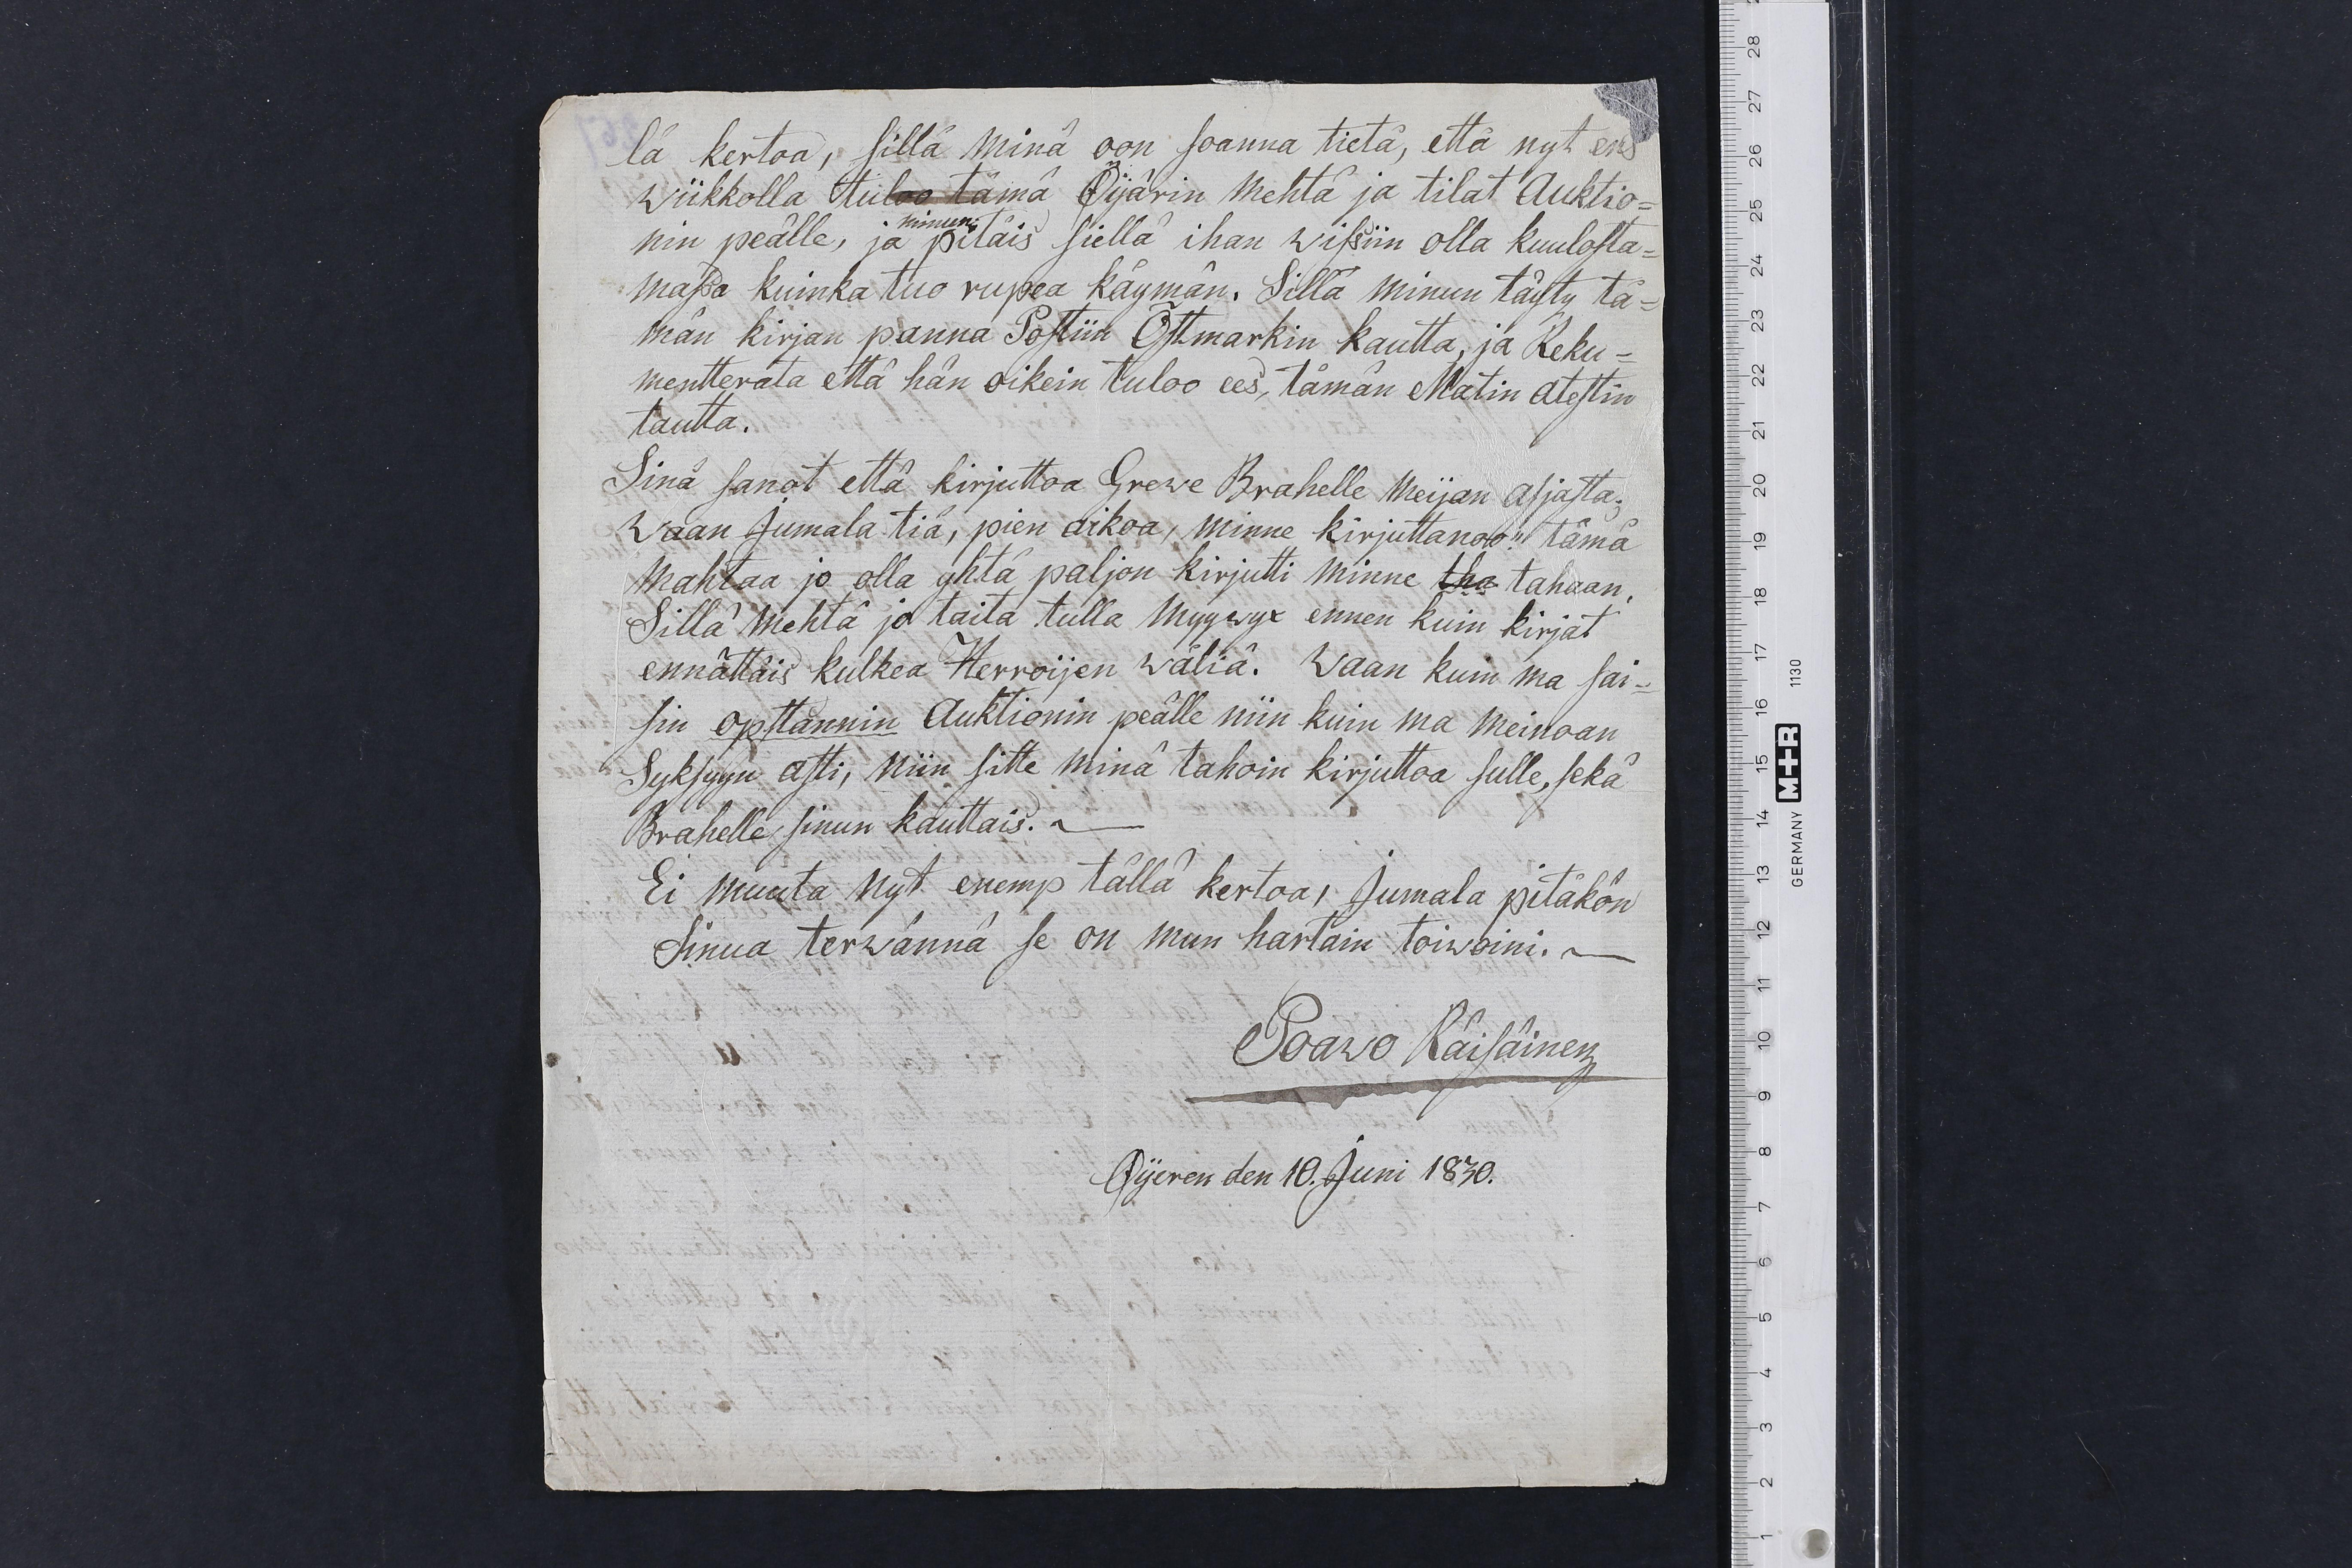 lä kertoa, sillä minä oon soanna tietä, että nyt ens
wiikkolla tuloo tämä Öijärin mehtä ja tilat Auktio=
nin peälle, ja minun pitäis siellä ihan wissiin olla kuulosta=
massa kuinka tuo rupea käymän. Sillä minun täyty tä=
män kirjan panna Postiin Östmarkin kautta, ja Reku=
mentterata että hän oikein tuloo ees, tämän Matin atestin
tautta.
Sinä sanot että kirjuttoa Grewe Brahelle meijan asjasta;
waan Jumala tiä, pien aikoa, minne kirjuttanoo!! tämä
mahtaa jo olla yhtä paljon kirjutti minne tha tahaan.
Sillä mehtä jo taita tulla myywyx ennen kuin kirjat
ennättäis kulkea Herroijen wäliä. Waan kuin ma sai=
sin opstannin Auktionin peälle niin kuin ma meinoan
Syksyyn asti, niin sitte minä tahoin kirjuttoa sulle, sekä
Brahelle sinun kauttais.
Ei muuta nyt enemp tällä kertoa, Jumala pitäkön
Sinua terwännä se on mun hartain toiwoini.
Poawo Räisäinen
Öijeren den 10. Juni 1830.
28
27
26
25
24
23
22
21
20
19
18
17
16
15
14
13
12
11
10
9
8
7
6
5
4
3
2
1
GERMANY M+R 1130